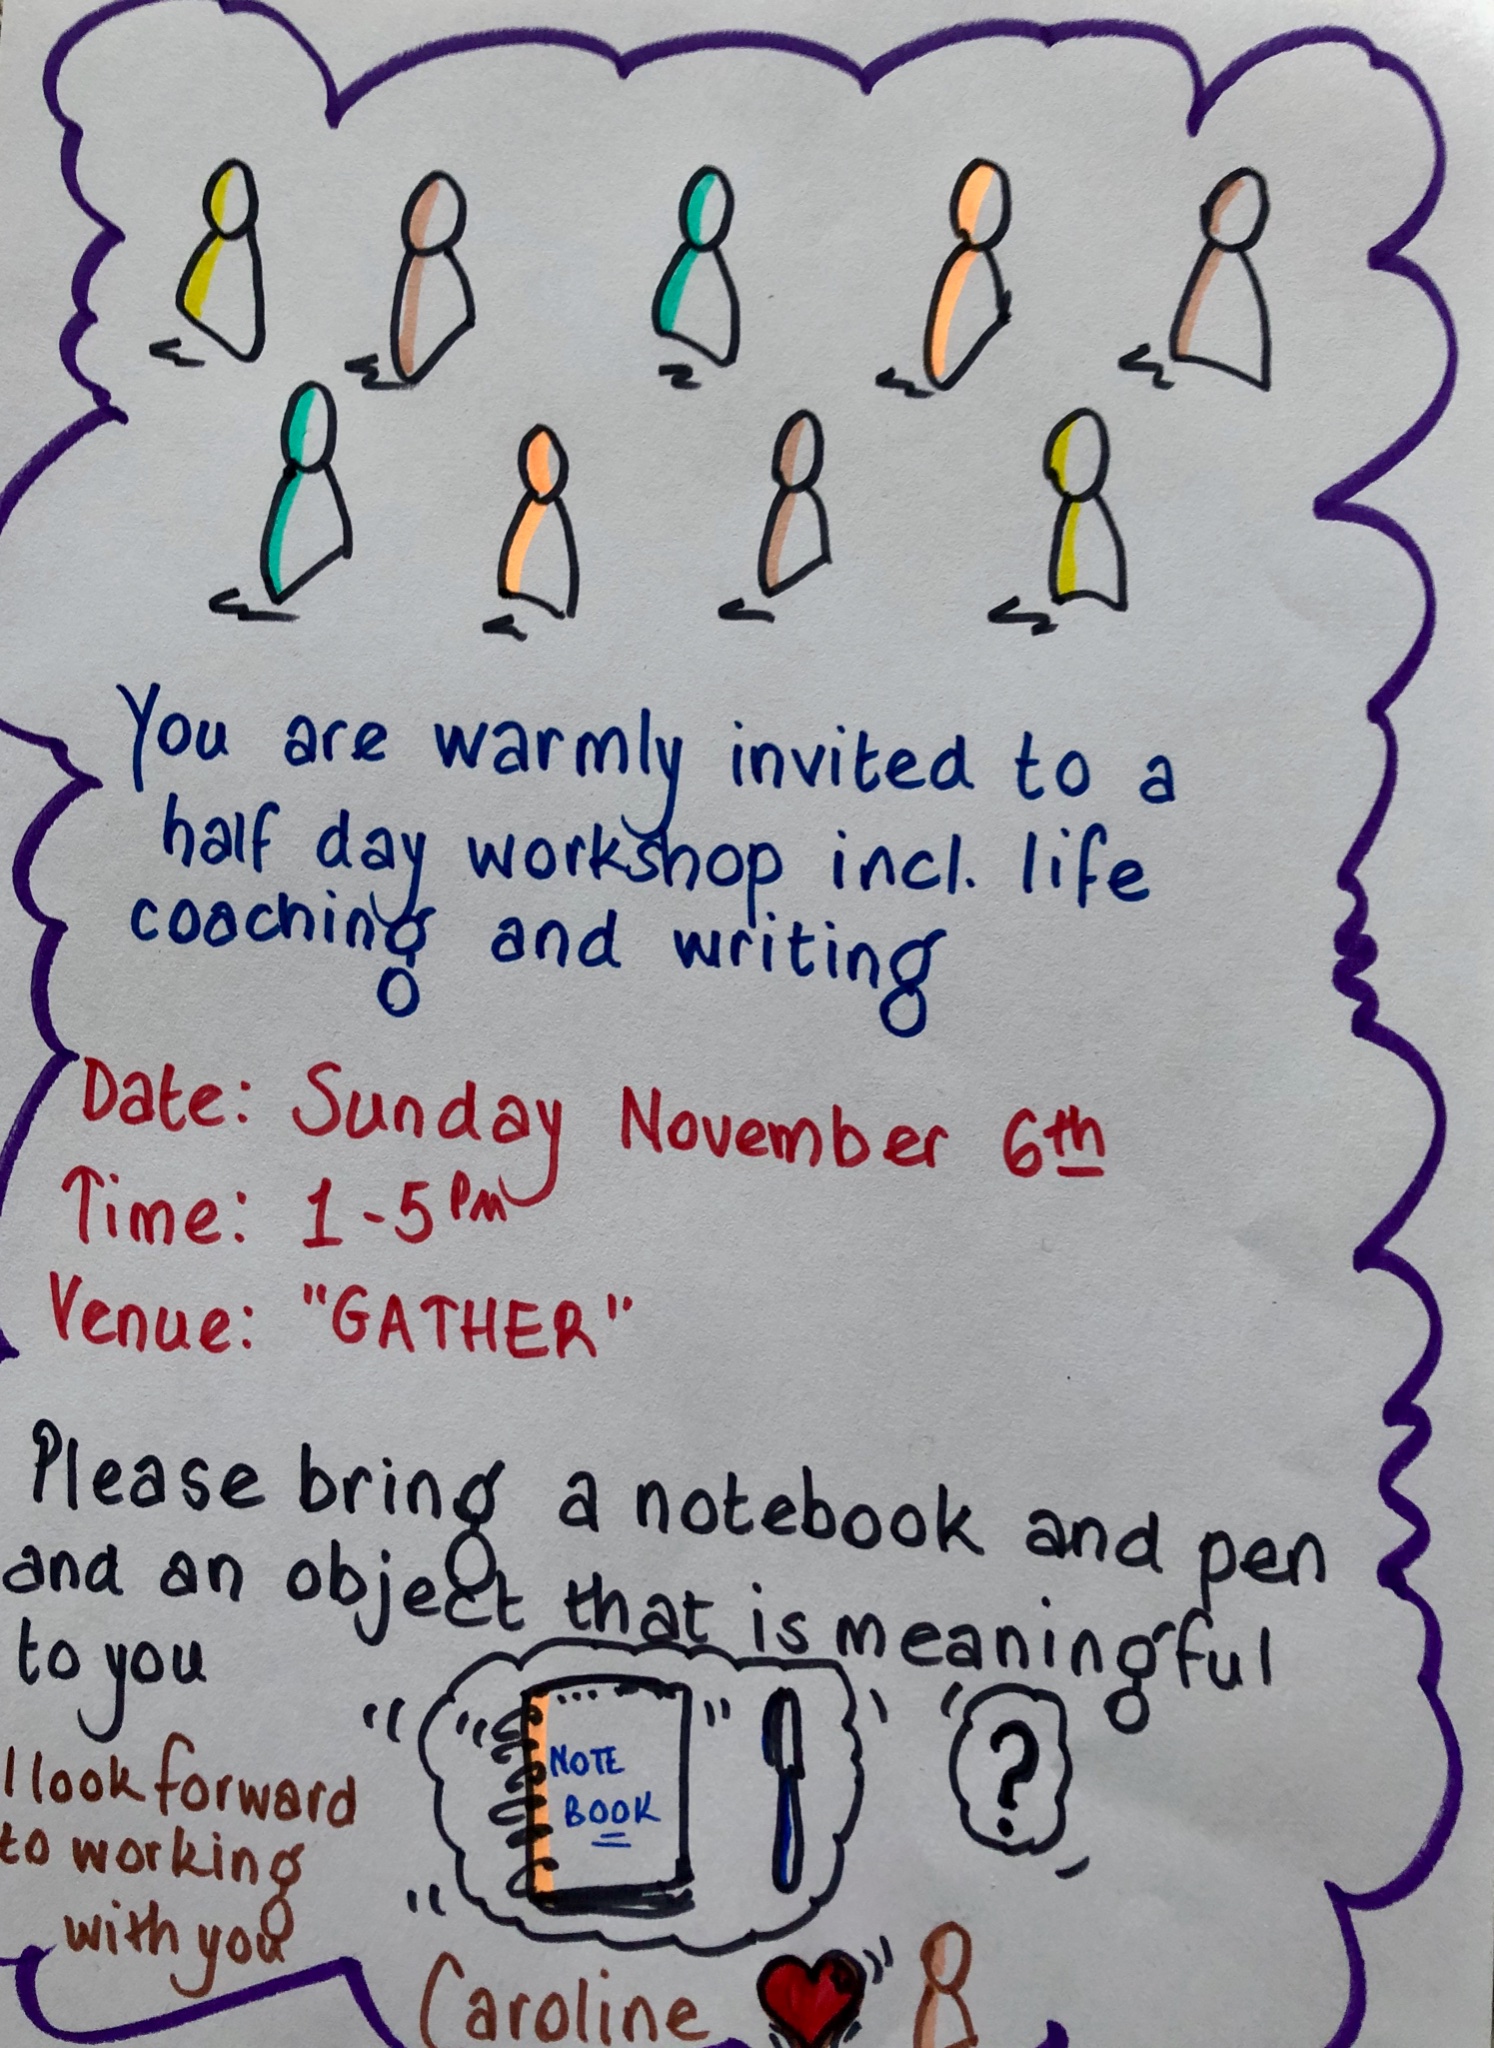 You are warmly invited to a
half day workshop incl. life
coaching and writing
Date: Sunday November 6th
Time: 1-5pm
Venue: "GATHER"
Please bring a notebook and pen
and an object that is meaningful
to you
NOTE
BOOK
?
I look forward
to working
with you
Caroline